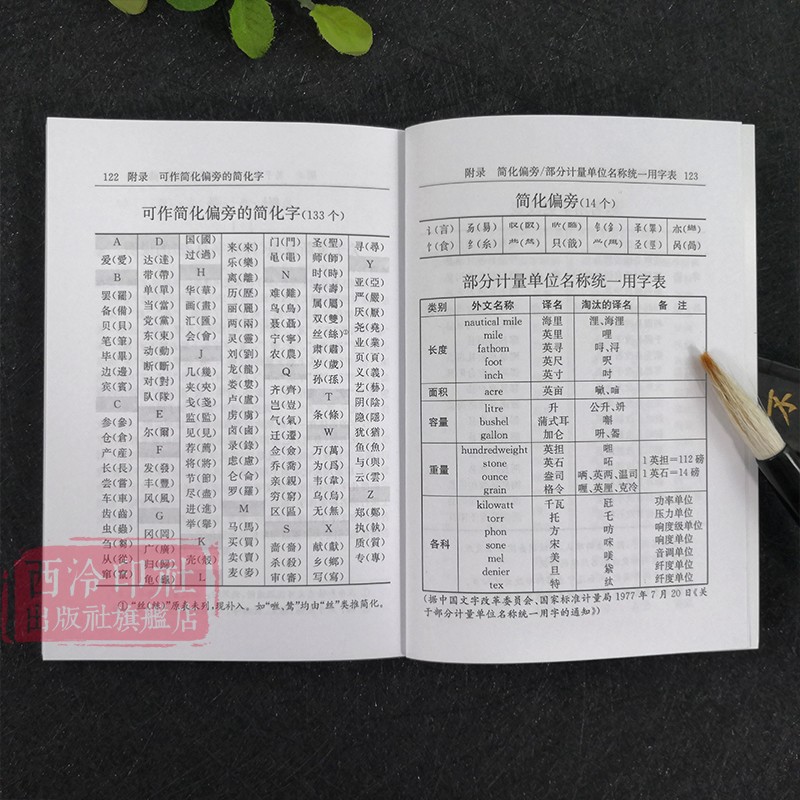 122 附录 可作简化偏旁的简化字
可作简化偏旁的简化字(133个)
A
爱(愛)
B
罢(罷)
备(備)
贝(貝)
笔(筆)
毕(畢)
边(邊)
宾(賓)
C
参(參)
仓(倉)
产(産)
长(長)
尝(嘗)
车(車)
齿(齒)
虫(蟲)
刍(芻)
从(從)
窜(竄)
D
达(達)
带(帶)
单(單)
当(當)
党(黨)
东(東)
动(動)
断(斷)
对(對)
队(隊)
E
尔(爾)
F
发(發)
丰(豐)
风(風)
G
冈(岡)
广(廣)
归(歸)
龟(龜)
国(國)
过(過)
H
华(華)
画(畫)
汇(匯)
会(會)
J
几(幾)
夹(夾)
戋(戔)
监(監)
见(見)
荐(薦)
将(將)
节(節)
尽(盡)
进(進)
举(舉)
K
壳(殻)
L
来(來)
乐(樂)
离(離)
历(歷)
丽(麗)
两(兩)
灵(靈)
刘(劉)
龙(龍)
娄(婁)
卢(盧)
虏(虜)
卤(鹵)
录(録)
虑(慮)
仑(侖)
罗(羅)
M
马(馬)
买(買)
卖(賣)
麦(麥)
门(門)
黾(黽)
N
难(難)
鸟(鳥)
聂(聶)
宁(寧)
农(農)
Q
齐(齊)
岂(豈)
气(氣)
迁(遷)
佥(僉)
乔(喬)
亲(親)
穷(窮)
区(區)
S
啬(嗇)
杀(殺)
审(審)
圣(聖)
师(師)
时(時)
寿(壽)
属(屬)
双(雙)
丝(絲)①
肃(肅)
岁(歲)
孙(孫)
T
条(條)
W
万(萬)
为(爲)
韦(韋)
乌(烏)
无(無)
X
献(獻)
乡(鄉)
写(寫)
寻(尋)
Y
亚(亞)
严(嚴)
厌(厭)
尧(堯)
业(業)
页(頁)
义(義)
艺(藝)
阴(陰)
隐(隱)
犹(猶)
鱼(魚)
与(與)
云(雲)
Z
郑(鄭)
执(執)
质(質)
专(專)
①“丝(絲)”原表未列,现补入。如“咝、鸶”均由“丝”类推简化。
附录 简化偏旁/部分计量单位名称统一用字表 123
简化偏旁(14个)
讠(言)
饣(食)
纟(糸)
部分计量单位名称统一用字表
类别 外文名称 译名 淘汰的译名 备 注
长度
nautical mile 海里 浬、海浬
mile 英里 哩
fathom 英寻 㖊、浔
foot 英尺 呎
inch 英寸 吋
面积 acre 英亩
容量
litre 升 公升、竔
bushel 蒲式耳
gallon 加仑 呏、嗧
重量
hundredweight 英担 1英担=112磅
stone 英石 1英石=14磅
ounce 盎司 唡、英两、温司
grain 格令 喱、英厘、克冷
各科
kilowatt 千瓦 瓩 功率单位
torr 托 乇 压力单位
phon 方 㕫 响度级单位
sone 宋 响度单位
mel 美 音调单位
denier 旦 纤度单位
tex 特 纤度单位
(据中国文字改革委员会、国家标准计量局1977年7月20日《关
于部分计量单位名称统一用字的通知》)
西泠印社
出版社旗艦店